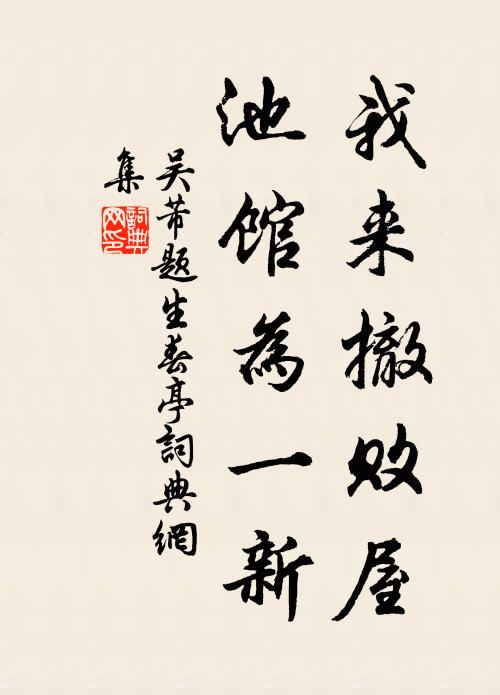 我来撤败屋
池馆為一新
吴芾题生春亭詞典網
集
詞典
网印